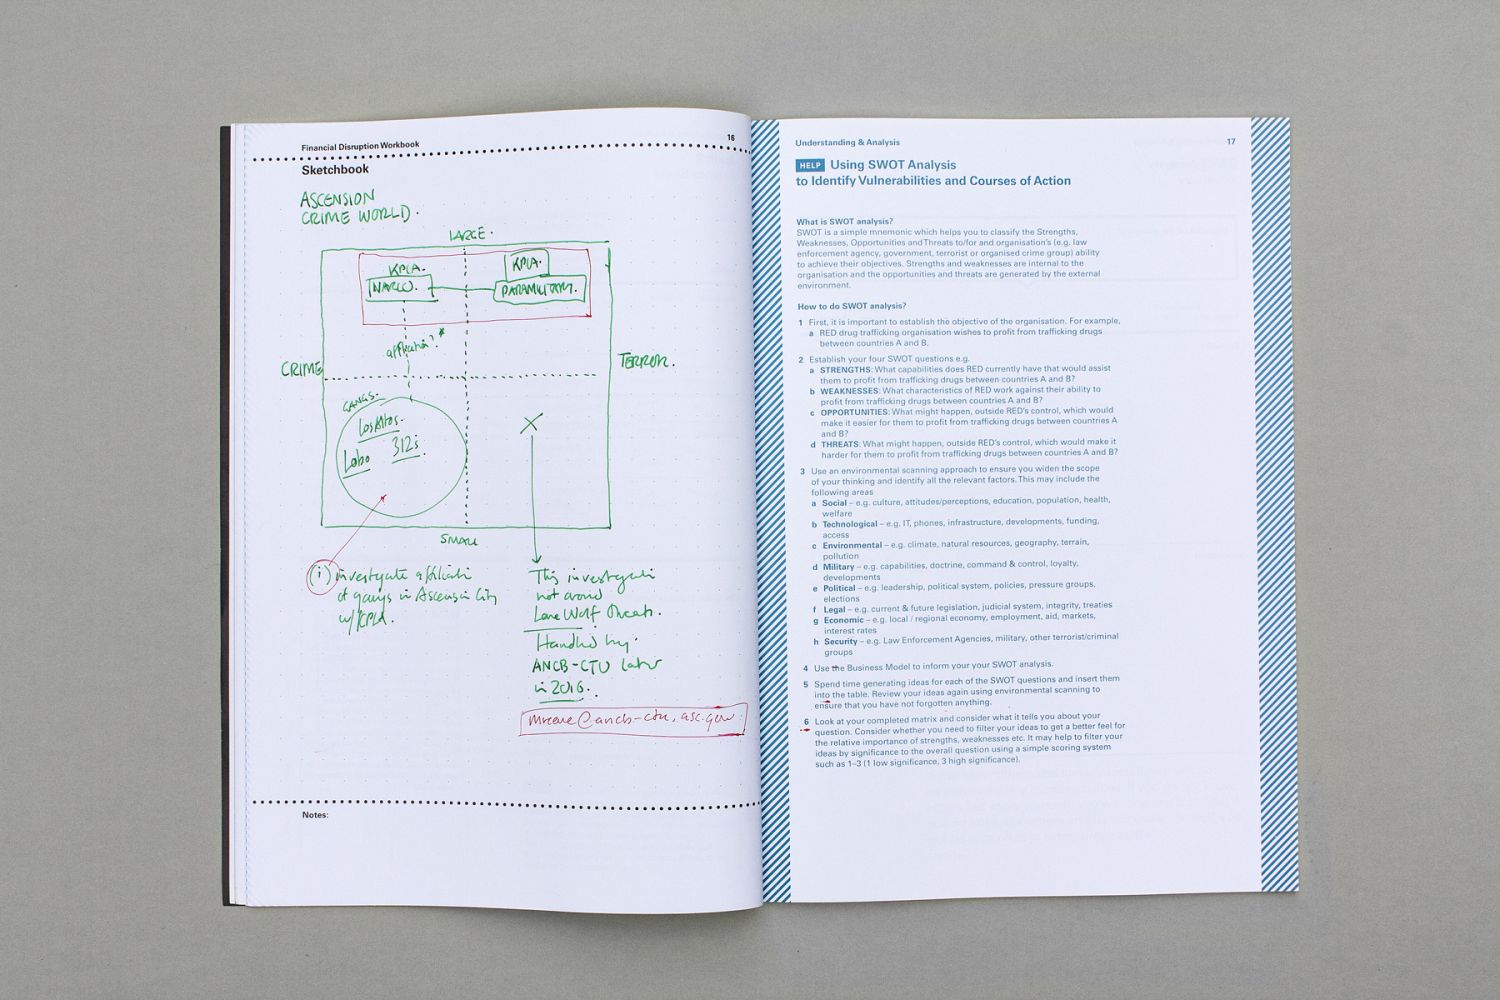 Financial Disruption Workbook
16
Sketchbook
ASCENSION
CRIME WORLD.
LARGE.
KPLA.
NARCO.
KPLA.
PARAMILITARY.
affiliation? *
CRIME
TERROR.
GANGS.
Los Altos.
Lobo
312s.
X
SMALL
(i) investigate affiliation
of gangs in Ascension City
w/KPLA.
This investigation
not around
Lone Wolf threats.
Handled by
ANCB-CTU later
in 2016.
@ancb-ctu.asc.gov
Notes:
Understanding & Analysis
17
HELP Using SWOT Analysis
to Identify Vulnerabilities and Courses of Action
What is SWOT analysis?
SWOT is a simple mnemonic which helps you to classify the Strengths,
Weaknesses, Opportunities and Threats to/for and organisation's (e.g. law
enforcement agency, government, terrorist or organised crime group) ability
to achieve their objectives. Strengths and weaknesses are internal to the
organisation and the opportunities and threats are generated by the external
environment.
How to do SWOT analysis?
1 First, it is important to establish the objective of the organisation. For example,
a RED drug trafficking organisation wishes to profit from trafficking drugs
between countries A and B.
2 Establish your four SWOT questions e.g.
a STRENGTHS: What capabilities does RED currently have that would assist
them to profit from trafficking drugs between countries A and B?
b WEAKNESSES: What characteristics of RED work against their ability to
profit from trafficking drugs between countries A and B?
c OPPORTUNITIES: What might happen, outside RED's control, which would
make it easier for them to profit from trafficking drugs between countries A
and B?
d THREATS: What might happen, outside RED's control, which would make it
harder for them to profit from trafficking drugs between countries A and B?
3 Use an environmental scanning approach to ensure you widen the scope
of your thinking and identify all the relevant factors. This may include the
following areas
a Social – e.g. culture, attitudes/perceptions, education, population, health,
welfare
b Technological – e.g. IT, phones, infrastructure, developments, funding,
access
c Environmental – e.g. climate, natural resources, geography, terrain,
pollution
d Military – e.g. capabilities, doctrine, command & control, loyalty,
developments
e Political – e.g. leadership, political system, policies, pressure groups,
elections
f Legal – e.g. current & future legislation, judicial system, integrity, treaties
g Economic – e.g. local / regional economy, employment, aid, markets,
interest rates
h Security – e.g. Law Enforcement Agencies, military, other terrorist/criminal
groups
4 Use the Business Model to inform your your SWOT analysis.
5 Spend time generating ideas for each of the SWOT questions and insert them
into the table. Review your ideas again using environmental scanning to
ensure that you have not forgotten anything.
6 Look at your completed matrix and consider what it tells you about your
question. Consider whether you need to filter your ideas to get a better feel for
the relative importance of strengths, weaknesses etc. It may help to filter your
ideas by significance to the overall question using a simple scoring system
such as 1–3 (1 low significance, 3 high significance).